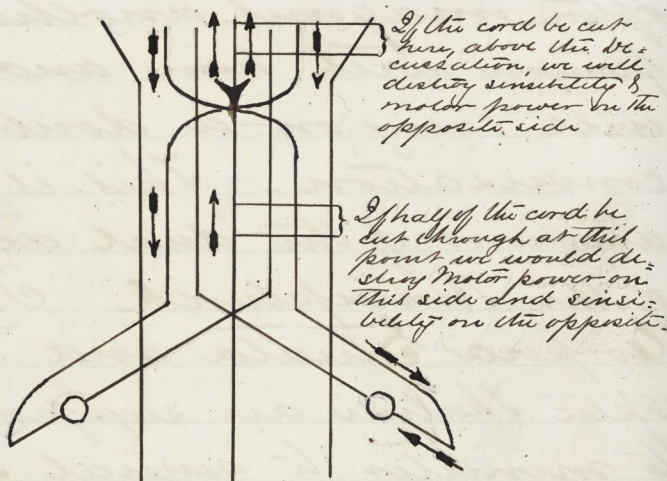 If the cord be cut
here, above the De=
cussation, we will
destroy sensibility &
motor power on the
opposite side
If half of the cord be
cut through at this
point we would de=
stroy motor power on
this side and sensi=
bility on the opposite.